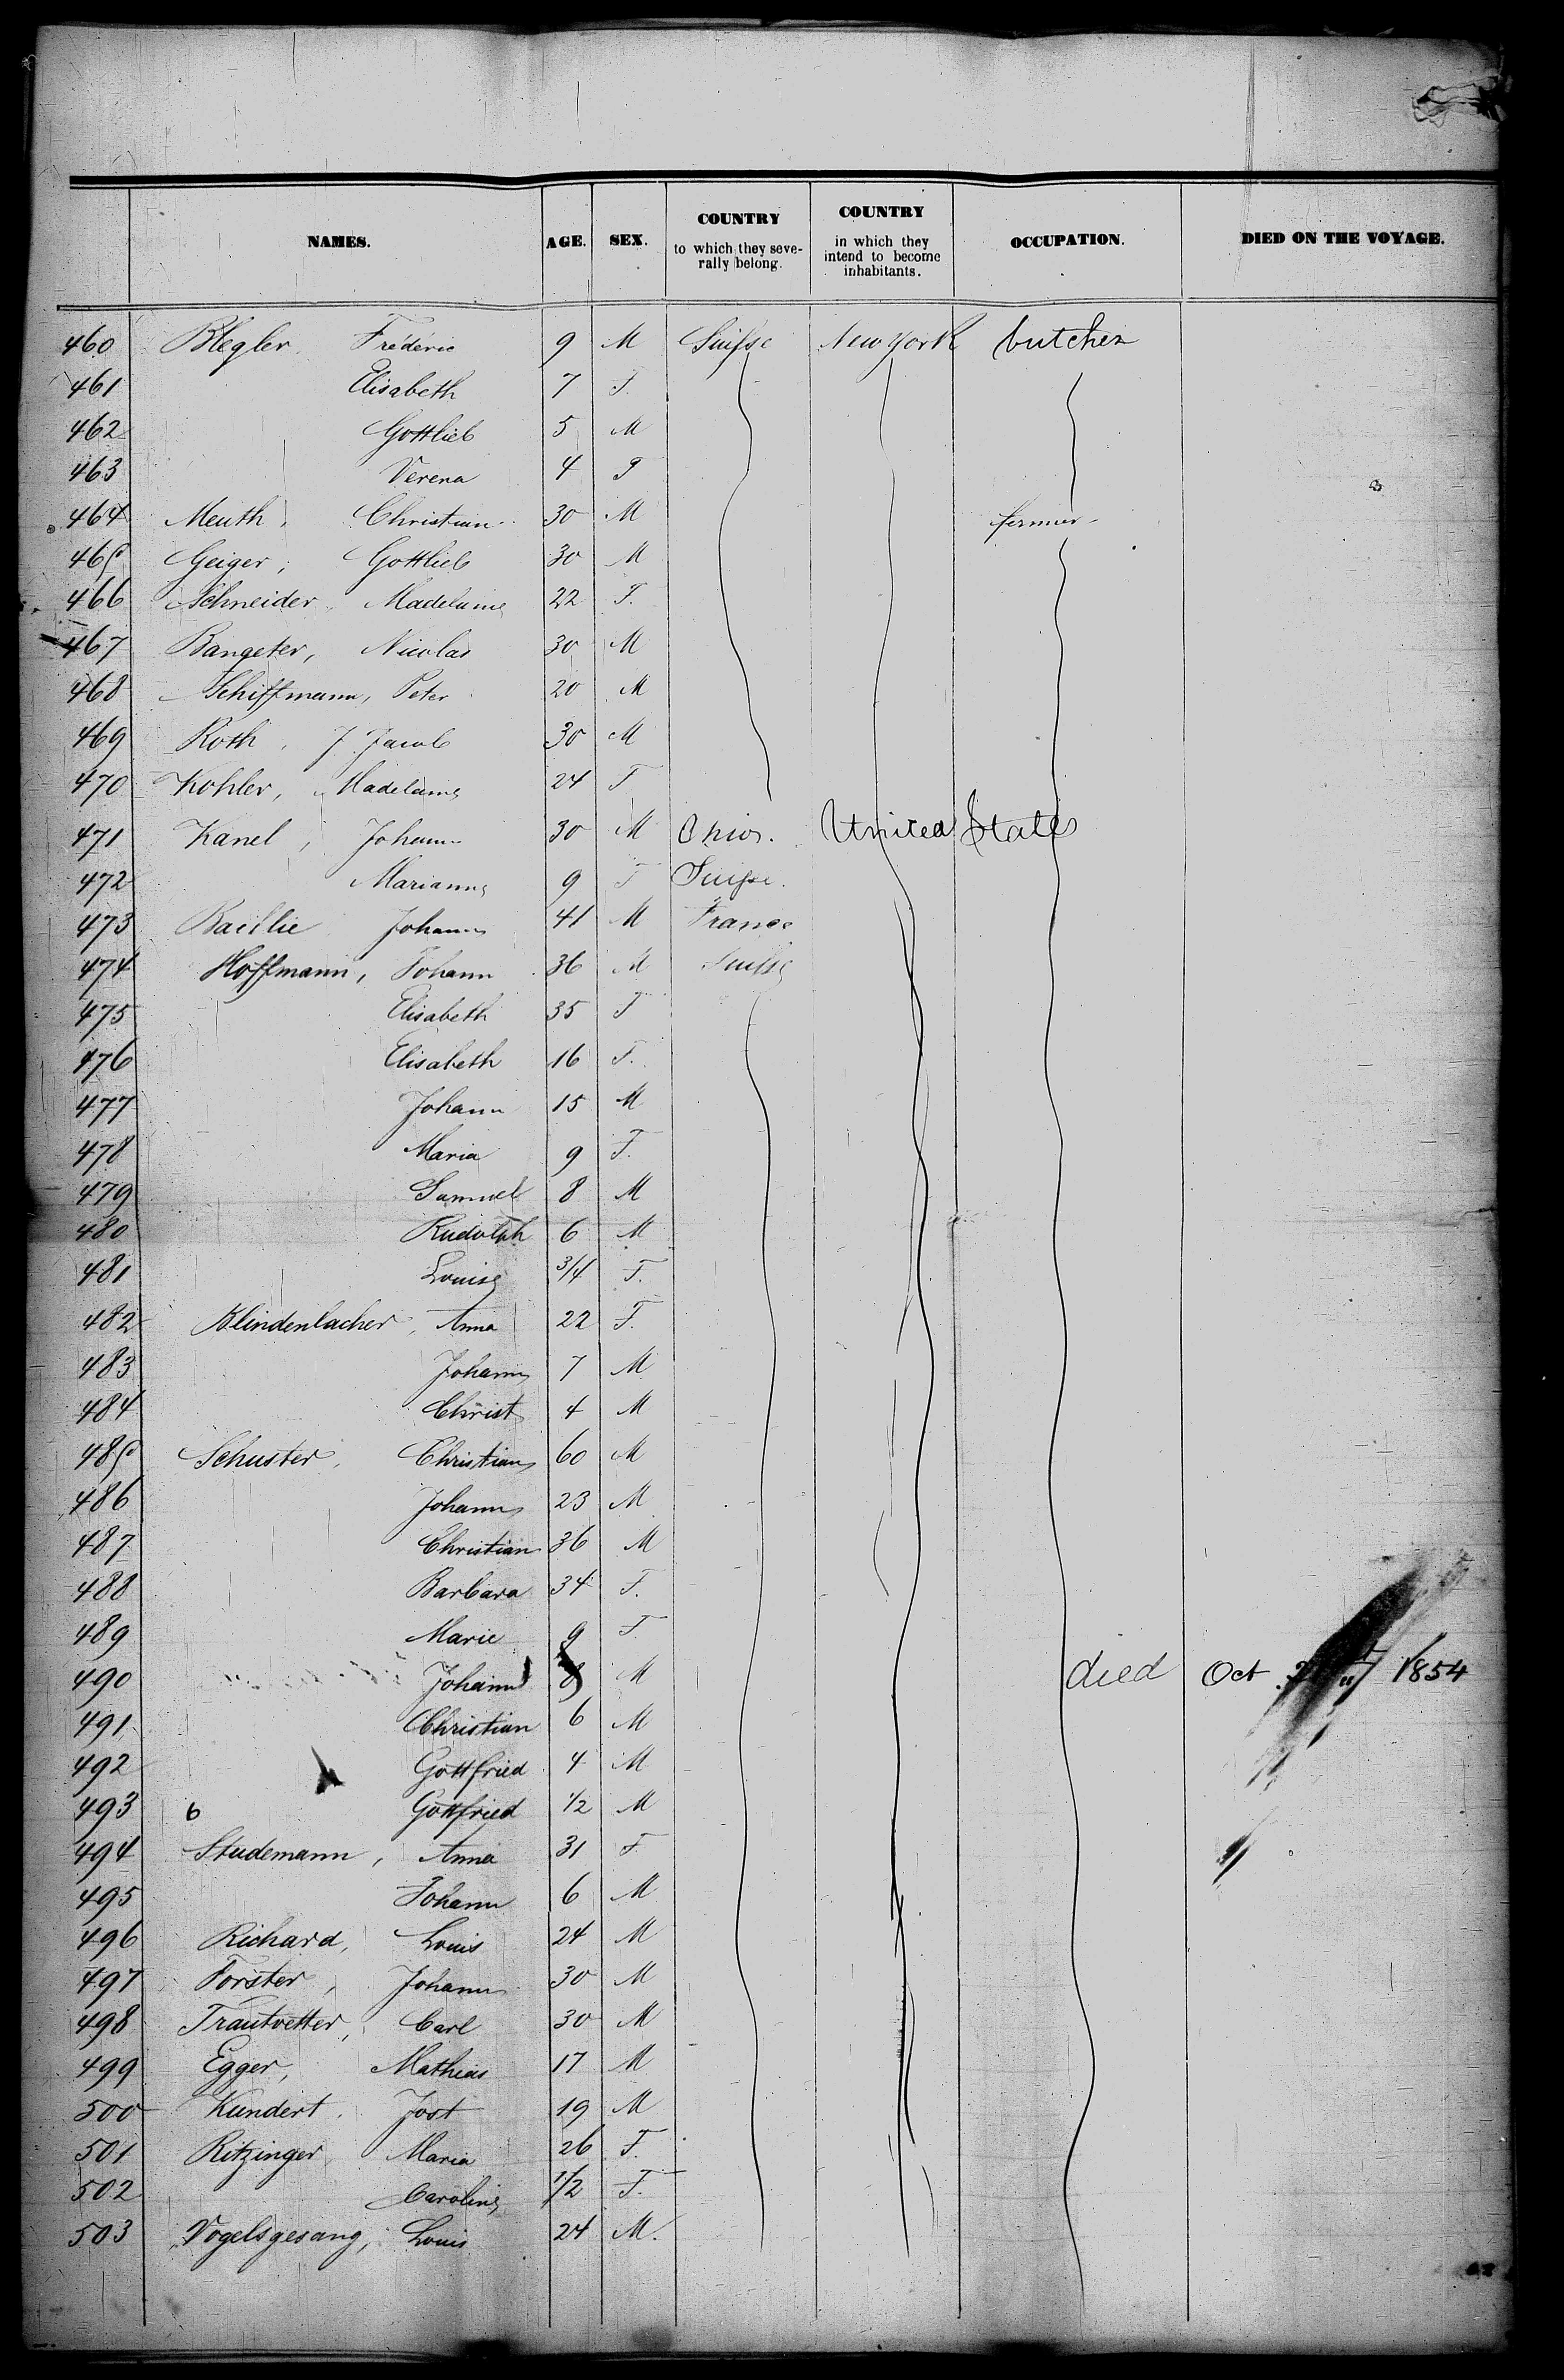 NAMES. AGE. SEX. COUNTRY to which they severally belong. COUNTRY in which they intend to become inhabitants. OCCUPATION. DIED ON THE VOYAGE.
460 Blegler, Frederic 9 M Suisse New York butcher
461 Elisabeth 7 F.
462 Gottlieb 5 M
463 Verena 4 F
464 Meuth, Christian 30 M fermier
465 Geiger, Gottlieb 30 M
466 Schneider, Madelaine 22 F.
467 Bangeter, Nicolas 30 M
468 Schiffmann, Peter 20 M
469 Roth, J. Jacob 30 M
470 Kohler, Madelaine 24 F
471 Kanel, Johann 30 M Ohio. United States
472 Marianne 9 F Suisse.
473 Baillie Johann 41 M France
474 Hoffmann, Johann 36 M Suisse
475 Elisabeth 35 F
476 Elisabeth 16 F.
477 Johann 15 M
478 Maria 9 F.
479 Samuel 8 M
480 Rudolph 6 M
481 Louise 3/4 F.
482 Blindenbacher, Anna 22 F.
483 Johann 7 M
484 Christ 4 M
485 Schuster, Christian 60 M
486 Johann 23 M
487 Christian 36 M
488 Barbara 34 F.
489 Marie 9 F
490 Johann 8 M died Oct 1854
491 Christian 6 M
492 Gottfried 4 M
493 6 Gottfried 1/2 M
494 Studemann, Anna 31 F
495 Johann 6 M
496 Richard, Louis 24 M
497 Forster, Johann 30 M
498 Trautvetter, Carl 30 M
499 Egger, Mathias 17 M
500 Kundert, Jost 19 M
501 Ritzinger, Maria 26 F.
502 Caroline 1/2 F.
503 Vogelsgesang, Louis 24 M.